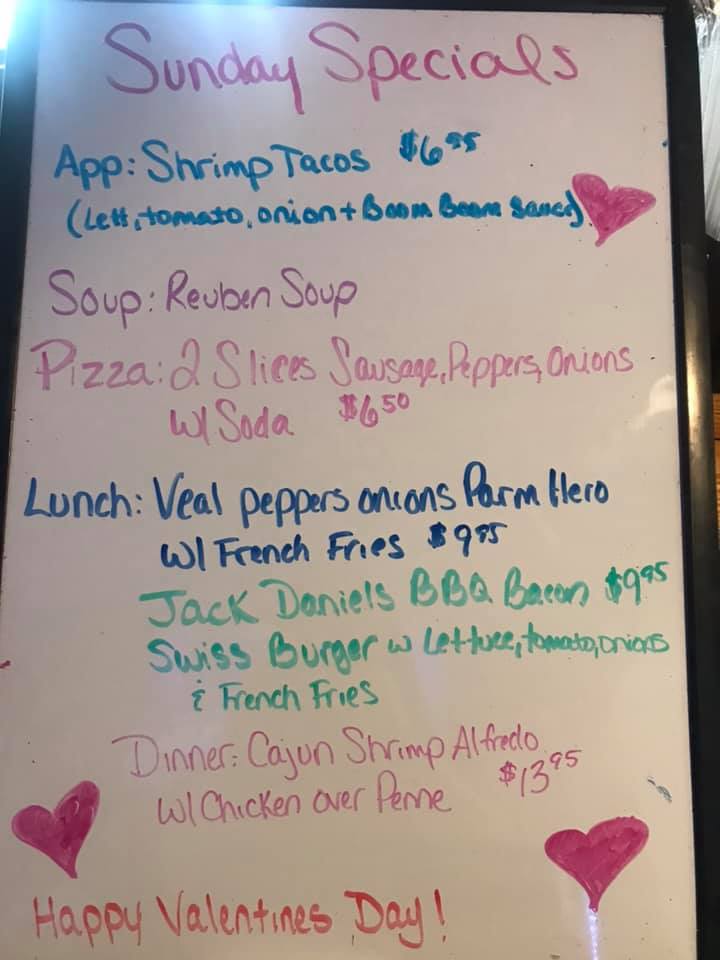 Sunday Specials
App: Shrimp Tacos $6.95
(Lett, tomato, onion + Boom Boom Sauce)
Soup: Reuben Soup
Pizza: 2 Slices Sausage, Peppers, Onions
w/ Soda $6.50
Lunch: Veal peppers onions Parm Hero
w/ French Fries $9.95
Jack Daniels BBQ Bacon $9.95
Swiss Burger w Lettuce, tomato, onions
& French Fries
Dinner: Cajun Shrimp Alfredo
w/ Chicken over Penne $13.95
Happy Valentines Day!